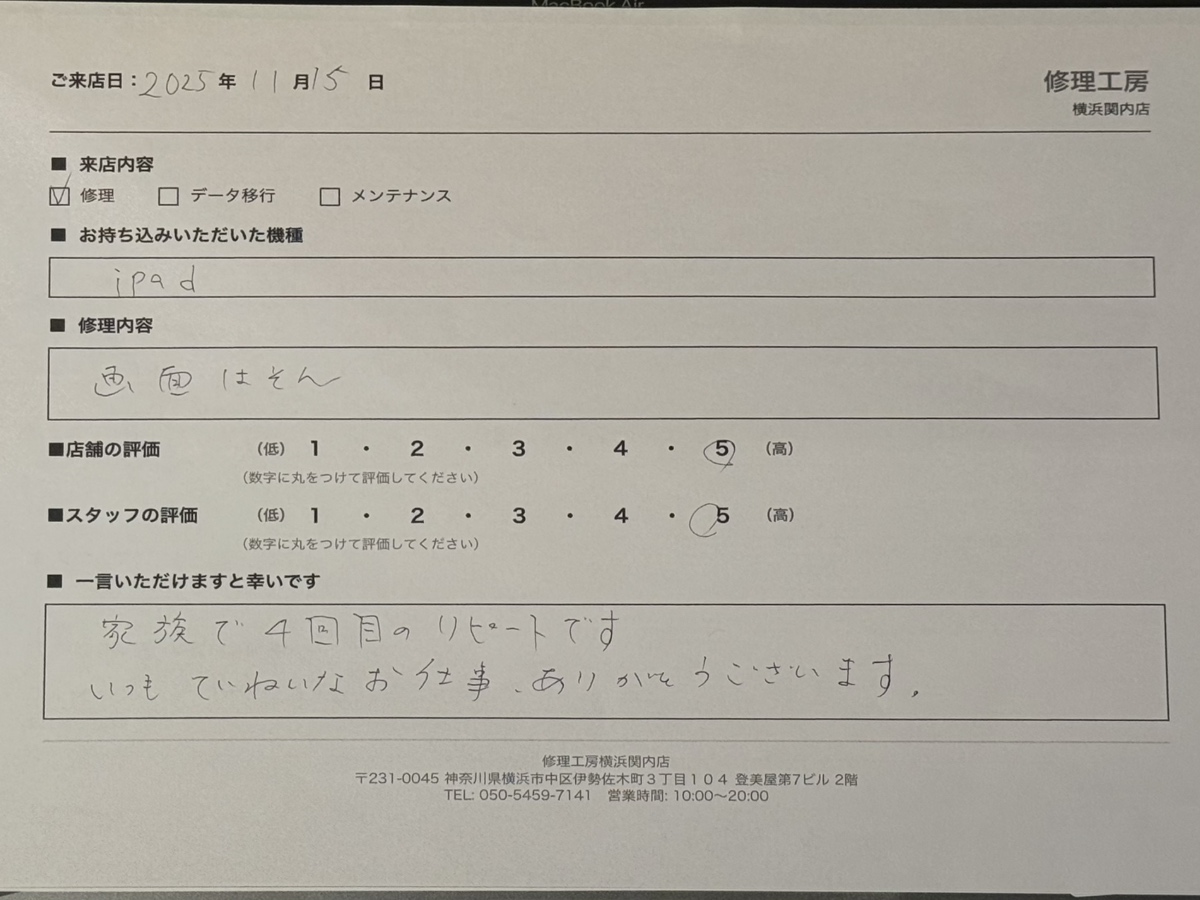 MacBook Air
ご来店日：2025年 11月15日
修理工房
横浜関内店
■ 来店内容
☑ 修理 □ データ移行 □ メンテナンス
■ お持ち込みいただいた機種
ipad
■ 修理内容
画面はそん
■店舗の評価 （低） 1 ・ 2 ・ 3 ・ 4 ・ 5 （高）
（数字に丸をつけて評価してください）
■スタッフの評価 （低） 1 ・ 2 ・ 3 ・ 4 ・ 5 （高）
（数字に丸をつけて評価してください）
■ 一言いただけますと幸いです
家族で4回目のリピートです
いつもていねいなお仕事、ありがとうございます。
修理工房横浜関内店
〒231-0045 神奈川県横浜市中区伊勢佐木町３丁目１０４ 登美屋第7ビル 2階
TEL: 050-5459-7141 営業時間: 10:00〜20:00